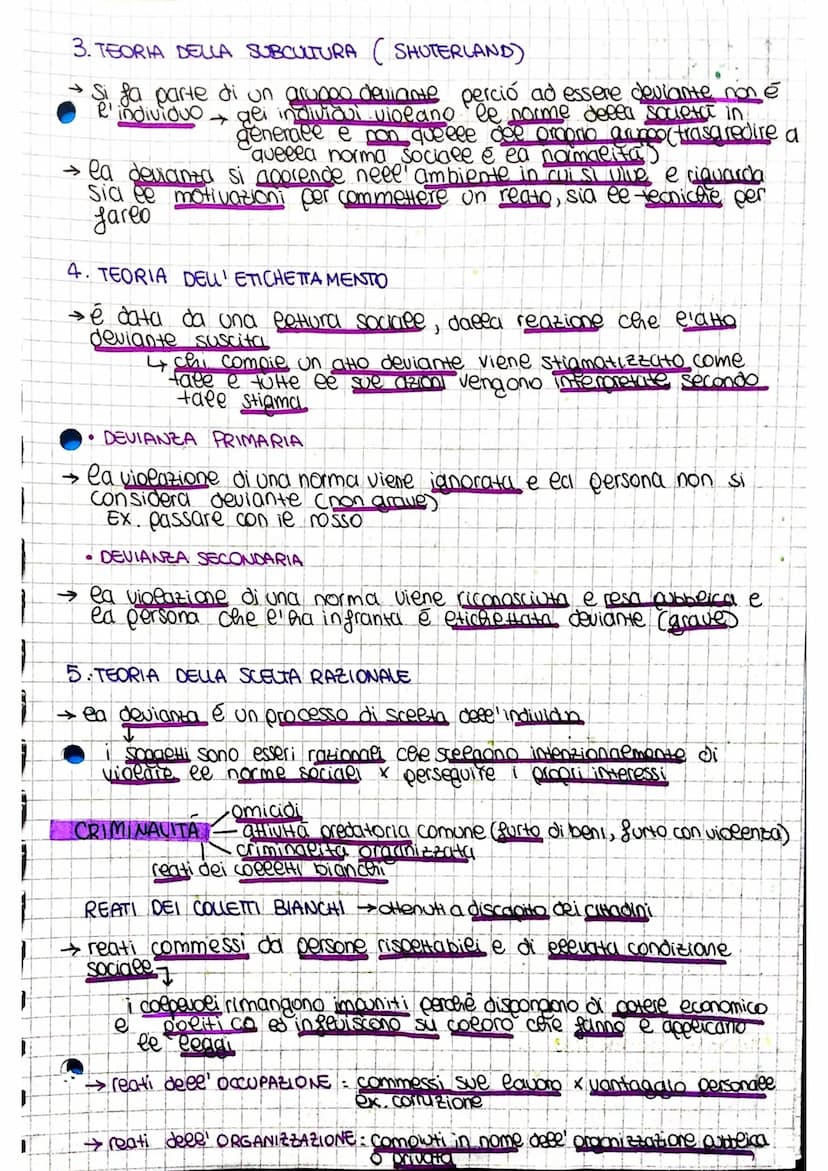 3. TEORIA DELLA SUBCULTURA ( SHUTERLAND)
→ Si fa parte di un gruppo deviante perció ad essere deviante non é
l'individuo → gli individui violano le norme della società in
generale e non quelle del proprio gruppo (trasgredire a
quella norma sociale é la normalità)
→ la devianza si apprende nell'ambiente in cui si vive e riguarda
sia le motivazioni per commettere un reato, sia le tecniche per
farlo
4. TEORIA DELL'ETICHETTAMENTO
→ é data da una lettura sociale, dalla reazione che l'atto
deviante suscita
↳ chi compie un atto deviante viene stigmatizzato come
tale e tutte le sue azioni vengono interpretate secondo
tale stigma
• DEVIANZA PRIMARIA
→ la violazione di una norma viene ignorata e la persona non si
considera deviante (non grave)
Ex. passare con il rosso
• DEVIANZA SECONDARIA
→ la violazione di una norma viene riconosciuta e resa pubblica e
la persona che l'ha infranta é etichettata deviante (grave)
5. TEORIA DELLA SCELTA RAZIONALE
→ la devianza é un processo di scelta dell'individuo
↓
i soggetti sono esseri razionali che scelgono intenzionalmente di
violare le norme sociali x perseguire i propri interessi
omicidi
CRIMINALITÀ — attività predatoria comune (furto di beni, furto con violenza)
criminalità organizzata
reati dei colletti bianchi
REATI DEI COLLETTI BIANCHI → ottenuti a discapito dei cittadini
→ reati commessi da persone rispettabili e di elevata condizione
sociale
i colpevoli rimangono impuniti perché dispongono di potere economico
e politico ed influiscono su coloro che fanno e applicano
le leggi
→ reati dell'OCCUPAZIONE: commessi sul lavoro x vantaggio personale
ex. corruzione
→ reati dell'ORGANIZZAZIONE: compiuti in nome dell'organizzazione pubblica
o privata